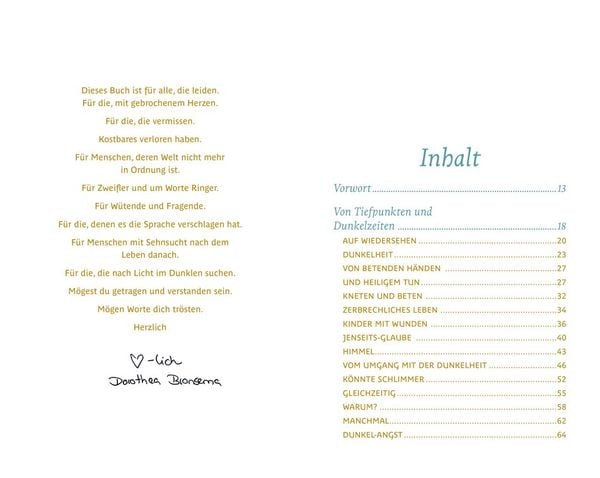 Dieses Buch ist für alle, die leiden.
Für die, mit gebrochenem Herzen.
Für die, die vermissen.
Kostbares verloren haben.
Für Menschen, deren Welt nicht mehr
in Ordnung ist.
Für Zweifler und um Worte Ringer.
Für Wütende und Fragende.
Für die, denen es die Sprache verschlagen hat.
Für Menschen mit Sehnsucht nach dem
Leben danach.
Für die, die nach Licht im Dunklen suchen.
Mögest du getragen und verstanden sein.
Mögen Worte dich trösten.
Herzlich
♡-lich
Dorothea Bronsema
Inhalt
Vorwort 13
Von Tiefpunkten und
Dunkelzeiten 18
AUF WIEDERSEHEN 20
DUNKELHEIT 23
VON BETENDEN HÄNDEN 27
UND HEILIGEM TUN 27
KNETEN UND BETEN 32
ZERBRECHLICHES LEBEN 34
KINDER MIT WUNDEN 36
JENSEITS-GLAUBE 40
HIMMEL 43
VOM UMGANG MIT DER DUNKELHEIT 46
KÖNNTE SCHLIMMER 52
GLEICHZEITIG 55
WARUM? 58
MANCHMAL 62
DUNKEL-ANGST 64